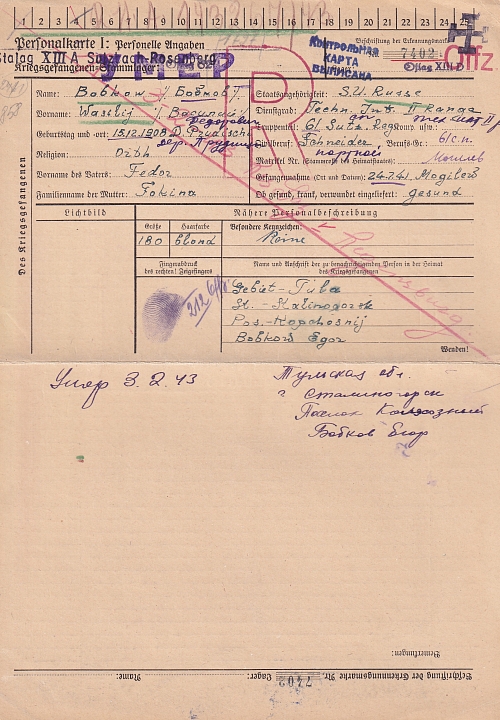 1 2 3 4 5 6 7 8 9 10 11 12 13 14 15 16 17 18 19 20 21 22 23 24 25
Personalkarte I: Personelle Angaben
Beschriftung der Erkennungsmarke
Stalag XIII A Sulzbach-Rosenberg
Nr. 7402
Kriegsgefangenen-Stammlager:
Oflag XIII D
УМЕР
КОНТРОЛЬНАЯ
КАРТА
ВЫПИСАНА
Offz
Des Kriegsgefangenen
Name: Bobkow / Бобков
Staatsangehörigkeit: S.U. Russe
Vorname: Wassilij / Василий
Dienstgrad: Techn. Int. II Ranga
Федорович
Geburtstag und -ort: 15.12.1908 D.
Truppenteil: 61 Sutz. Reg. Komp. usw.:
дер.
Religion: Orth.
Zivilberuf: Schneider Berufs-Gr.: 6/с.п.
портной
Matrikel Nr. (Stammrolle des Heimatstaates):
Vorname des Vaters: Fedor
Gefangennahme (Ort und Datum): 24.7.41, Mogilew
Familienname der Mutter: Fokina
Ob gesund, krank, verwundet eingeliefert: gesund
Lichtbild
Nähere Personalbeschreibung
Größe Haarfarbe Besondere Kennzeichen:
180 blond Keine
Fingerabdruck
des rechten! Zeigefingers
Name und Anschrift der zu benachrichtigenden Person in der Heimat
des Kriegsgefangenen
Gebiet-Tula
St.-Stalinogorsk
Pos.-Kopchosnij
Bobkow Egor
Wenden!
Умер 3.2.43
Тульская обл.
г Сталиногорск
Поселок Колхозный
Бобков Егор
Bemerkungen:
Beschriftung der Erkennungsmarke Nr. 7402 Lager: Name: